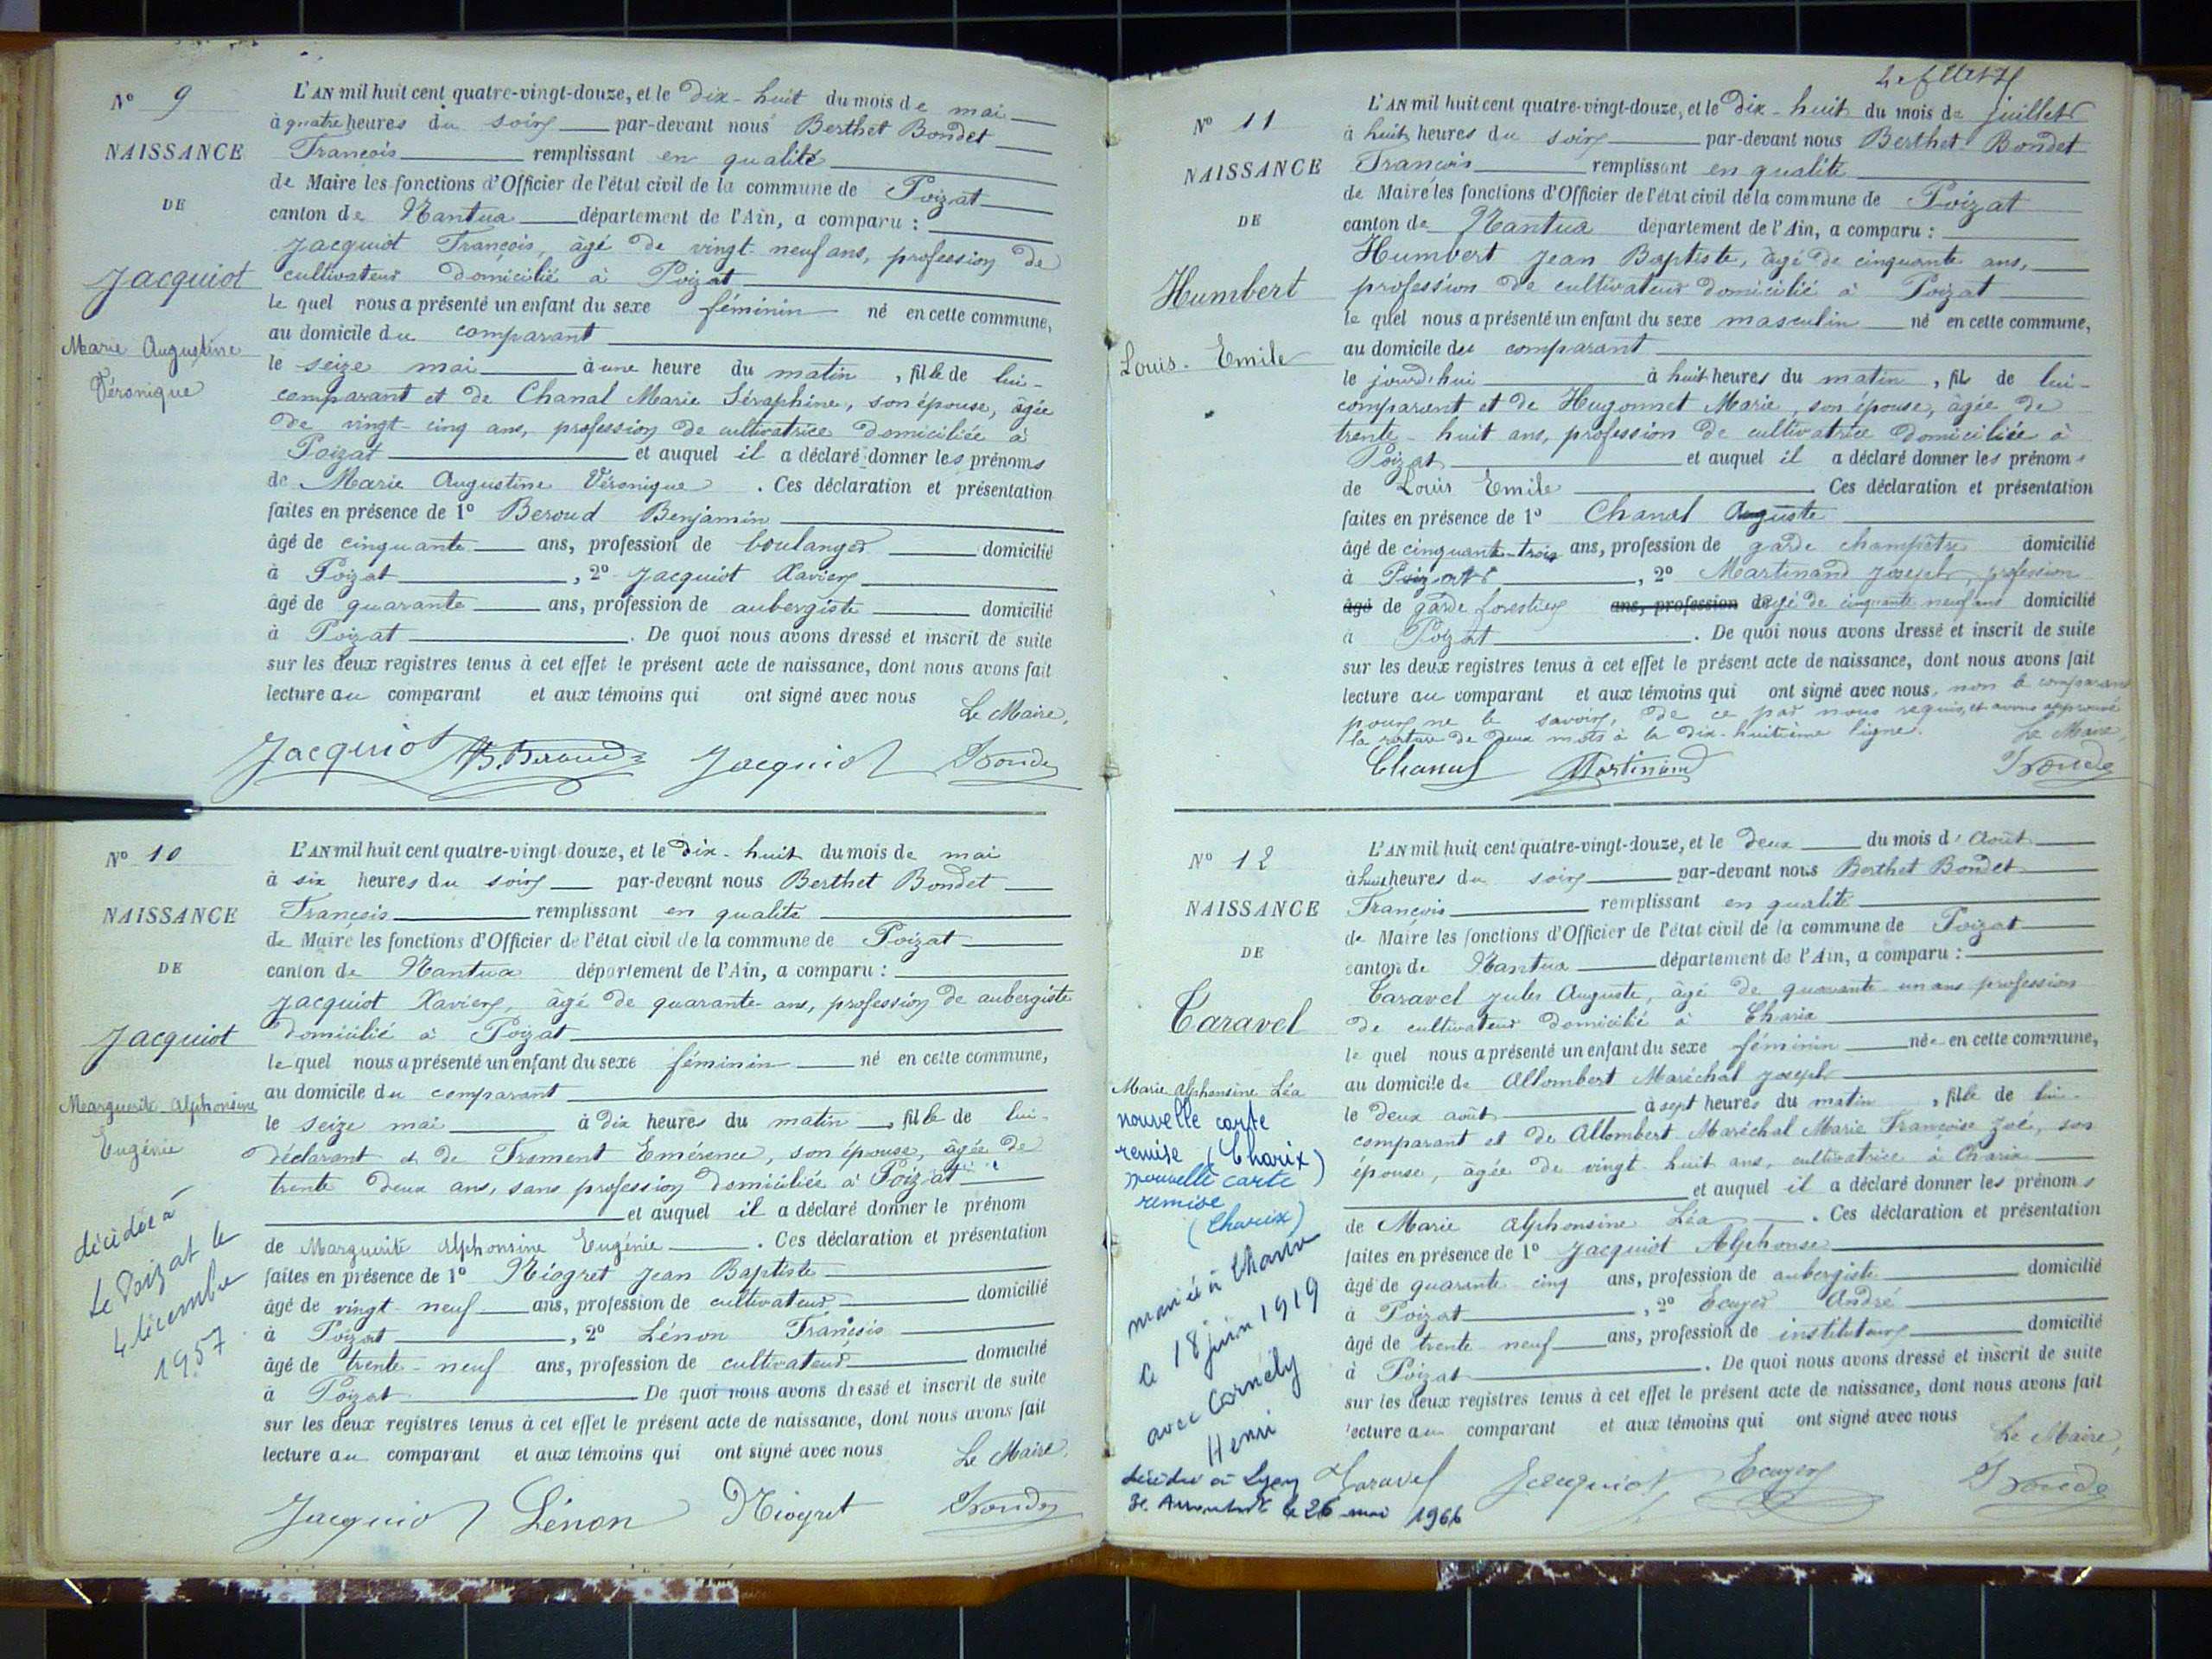 Nº 9
NAISSANCE
DE
Jacquiot
Marie Augustine
Véronique
L'AN mil huit cent quatre-vingt-douze, et le dix-huit du mois de mai
à quatre heures du soir par-devant nous Berthet Bondet
François remplissant en qualité
de Maire les fonctions d'Officier de l'état civil de la commune de Poizat
canton de Nantua département de l'Ain, a comparu :
Jacquiot François, âgé de vingt-neuf ans, profession de
cultivateur domicilié à Poizat
le quel nous a présenté un enfant du sexe féminin né en cette commune,
au domicile du comparant
le seize mai à une heure du matin, fille de lui-
comparant et de Chanal Marie Séraphine, son épouse, âgée
de vingt-cinq ans, profession de cultivatrice domiciliée à
Poizat et auquel il a déclaré donner les prénoms
de Marie Augustine Véronique. Ces déclaration et présentation
faites en présence de 1º Beroud Benjamin
âgé de cinquante ans, profession de boulanger domicilié
à Poizat, 2º Jacquiot Xavier
âgé de quarante ans, profession de aubergiste domicilié
à Poizat. De quoi nous avons dressé et inscrit de suite
sur les deux registres tenus à cet effet le présent acte de naissance, dont nous avons fait
lecture au comparant et aux témoins qui ont signé avec nous
Le Maire,
Jacquiot B. Beroud Jacquiot Bondet
Nº 10
NAISSANCE
DE
Jacquiot
Marguerite Alphonsine
Eugénie
décédée à
Le Poizat le
4 décembre
1957
L'AN mil huit cent quatre-vingt-douze, et le dix-huit du mois de mai
à six heures du soir par-devant nous Berthet Bondet
François remplissant en qualité
de Maire les fonctions d'Officier de l'état civil de la commune de Poizat
canton de Nantua département de l'Ain, a comparu :
Jacquiot Xavier, âgé de quarante ans, profession de aubergiste
domicilié à Poizat
le quel nous a présenté un enfant du sexe féminin né en cette commune,
au domicile du comparant
le seize mai à dix heures du matin, fille de lui-
déclarant et de Froment Emérence, son épouse, âgée de
trente deux ans, sans profession domiciliée à Poizat
et auquel il a déclaré donner le prénom
de Marguerite Alphonsine Eugénie. Ces déclaration et présentation
faites en présence de 1º Niogret Jean Baptiste
âgé de vingt-neuf ans, profession de cultivateur domicilié
à Poizat, 2º Lénon François
âgé de trente-neuf ans, profession de cultivateur domicilié
à Poizat De quoi nous avons dressé et inscrit de suite
sur les deux registres tenus à cet effet le présent acte de naissance, dont nous avons fait
lecture au comparant et aux témoins qui ont signé avec nous
Le Maire
Jacquiot Lénon Niogret Bondet
Nº 11
NAISSANCE
DE
Humbert
Louis-Emile
L'AN mil huit cent quatre-vingt-douze, et le dix-huit du mois de juillet
à huit heures du soir par-devant nous Berthet-Bondet
François remplissant en qualité
de Maire les fonctions d'Officier de l'état civil de la commune de Poizat
canton de Nantua département de l'Ain, a comparu :
Humbert Jean Baptiste, âgé de cinquante ans,
profession de cultivateur domicilié à Poizat
le quel nous a présenté un enfant du sexe masculin né en cette commune,
au domicile du comparant
le jourd'hui à huit heures du matin, fils de lui-
comparant et de Hugonnet Marie, son épouse, âgée de
trente-huit ans, profession de cultivatrice domiciliée à
Poizat et auquel il a déclaré donner les prénoms
de Louis Emile Ces déclaration et présentation
faites en présence de 1º Chanal Auguste
âgé de cinquante-trois ans, profession de garde champêtre domicilié
à Poizat, 2º Martinand Joseph, profession
âgé de garde forestier ans, profession âgé de cinquante neuf ans domicilié
à Poizat. De quoi nous avons dressé et inscrit de suite
sur les deux registres tenus à cet effet le présent acte de naissance, dont nous avons fait
lecture au comparant et aux témoins qui ont signé avec nous, non le comparant
pour ne le savoir, de ce par nous requis, et avons approuvé
la rature de deux mots à la dix-huitième ligne.
Le Maire,
Chanal Martinand Bondet
Nº 12
NAISSANCE
DE
Taravel
Marie Alphonsine Léa
nouvelle carte
remise (Charix)
nouvelle carte
remise
(Charix)
mariée à Charix
le 18 juin 1919
avec Cornély
Henri
décédée à Lyon
le 26 mai 1966
L'AN mil huit cent quatre-vingt-douze, et le deux du mois d'Août
à huit heures du soir par-devant nous Berthet Bondet
François remplissant en qualité
de Maire les fonctions d'Officier de l'état civil de la commune de Poizat
canton de Nantua département de l'Ain, a comparu :
Taravel Jules Auguste, âgé de quarante un ans profession
de cultivateur domicilié à Charix
le quel nous a présenté un enfant du sexe féminin née en cette commune,
au domicile de Allombert Maréchal Joseph
le deux août à sept heures du matin, fille de lui-
comparant et de Allombert-Maréchal Marie Françoise Zoé, son
épouse, âgée de vingt-huit ans, cultivatrice à Charix
et auquel il a déclaré donner les prénoms
de Marie Alphonsine Léa. Ces déclaration et présentation
faites en présence de 1º Jacquiot Alphonse
âgé de quarante cinq ans, profession de aubergiste domicilié
à Poizat, 2º Ecuyer André
âgé de trente neuf ans, profession de instituteur domicilié
à Poizat. De quoi nous avons dressé et inscrit de suite
sur les deux registres tenus à cet effet le présent acte de naissance, dont nous avons fait
lecture au comparant et aux témoins qui ont signé avec nous
Le Maire,
Taravel Jacquiot Ecuyer Bondet